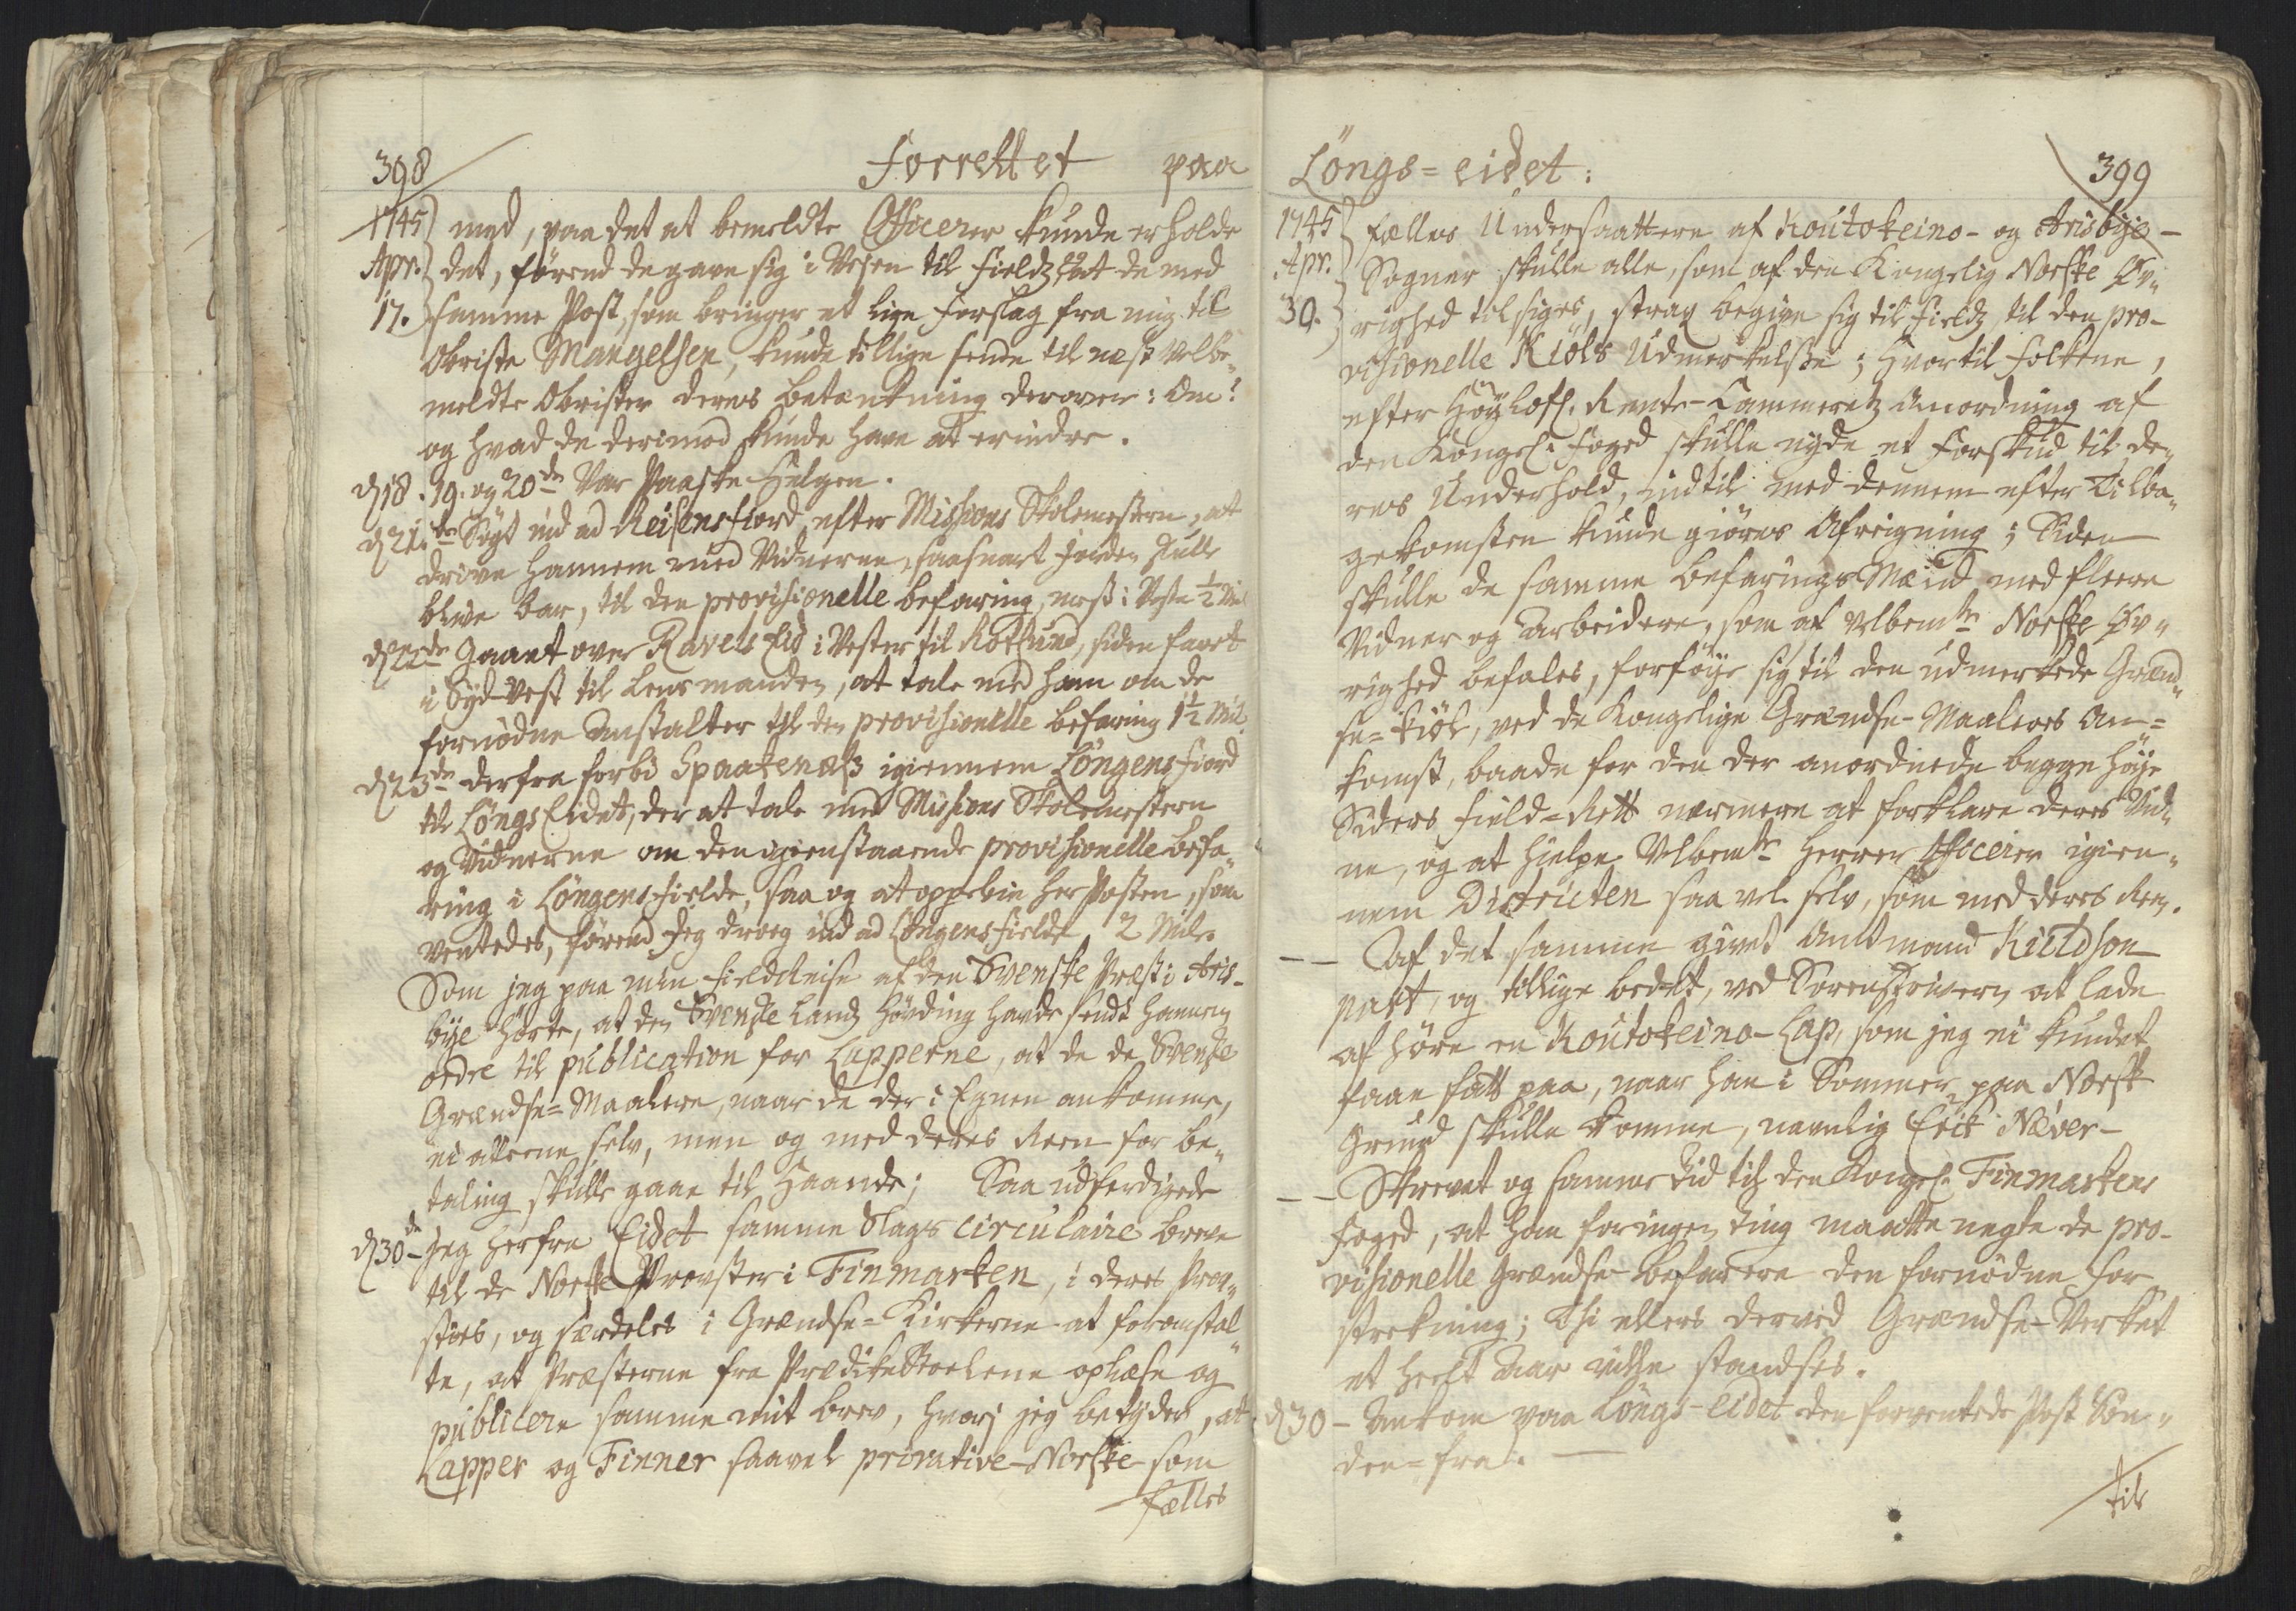 398 Forrettet paa
1745 med, paa det at bemeldte Officerer kunde erholde
Apr. det, førend de gave sig i Veyen til Fieldz, at de med
17. samme Post, som bringer et lige Forslag fra mig til
Obriste Mangelsen, kunde tillige sende til næst velbe-
meldte Obrister deres Betænkning derover: Om?
og hvad de derimod kunde have at erindre.
d 18. 19. og 20de Var Paaske-Helgen.
d 21de Søgt ind ad Reisensfiord efter Missions Skolemesteren, at
drive hannem med Vidnerne, saasnart Jorden skulle
blive bar, til den provisionelle befaring, mest i Vester ½ Miil
d 22de Gaaet over Ravels Eid i Vester til Rotsund, siden faret
i Syd-Vest til Lensmanden, at tale med ham om de
fornødne Anstalter til den provisionelle befaring 1½ Mil.
d 23de derfra forbi Spaatenæss igiennem Löngens fiord
til Löngs Eidet, der at tale med Missions Skolemesteren
og Vidnerne om den igienstaaende provisionelle befa-
ring i Löngens fielde, saa og at oppebie her Posten, som
ventedes, førend Jeg droeg ind ad Löngens fielde 2 Mile.
Som jeg paa min Field-Reise af den Svenske Præst i Aris-
bye hørte, at den Svenske Landz Høvding havde sendt hannem
ordre til publication for Lapperne, at de de Svenske
Grændse-Maalere, naar de der i Egnen ankomme,
ei alleene selv, men og med deres Reen for be-
taling skulle gaae til Haande; Saa udferdigede
d 30de jeg herfra Eidet samme Slags circulaire breve
til de Norske Provster i Finmarken, i deres Prov-
stier, og særdeles i Grændse-Kirkerne at foranstal-
te, at Præsterne fra Prædikestoelene oplæse og
publicere samme mit brev, hvori jeg betyder, at
Lapper og Finner saavel privative-Norske som
fælles
Löngs-eidet: 399
1745 fælles Undersaattere af Koutokeino- og Arisbyes-
Apr. Sogner skulle alle, som af den Kongelig Norske Øv-
30. righed tilsiges, strax begive sig til Fieldz, til den pro-
visionelle Kiöls Udmerkelse; Hvortil Folkene,
efter Höylofl. Rente-Cammeretz Anordning af
den Kongel. Foged skulle nyde et Forskud til de-
res Underhold, indtil med dennem efter Tilba-
gekomsten kunde giøres Afreigning; Siden
skulle de samme Befarings-Mænd med fleere
Vidner og Arbeidere, som af Velbemte Norske Øv-
righed befales, forföye sig til den udmerkede Grænd-
se-Kiöl, ved de Kongelige Grændse-Maaleres An-
komst, baade for den der anordnede begge Höye
Siders Field-Rett nærmere at forklare deres Vid-
ne, og at hielpe Velbemte Herrer Officerer igien-
nem Districten saa vel selv, som med deres Reen.
-- Af det samme givet Amtmand Kieldson
part, og tillige bedet, ved Sorenskriveren at lade
afhöre en Koutokeino-Lap, som jeg ei kundet
faae fatt paa, naar han i Sommer paa Norsk
Grund skulle komme, navnlig Erik Næver-
-- Skrevet og samme tid til den Kongel. Finmarkens
Foged, at han foringen ting maatte negte de pro-
visionelle Grændse-befarere den fornødne For-
strekning; Thi ellers derved Grændse-Verket
et heelt Aar ville standses.
d 30 - Ankom paa Löngs-eidet den forventede Post Søn-
den-fra.
til